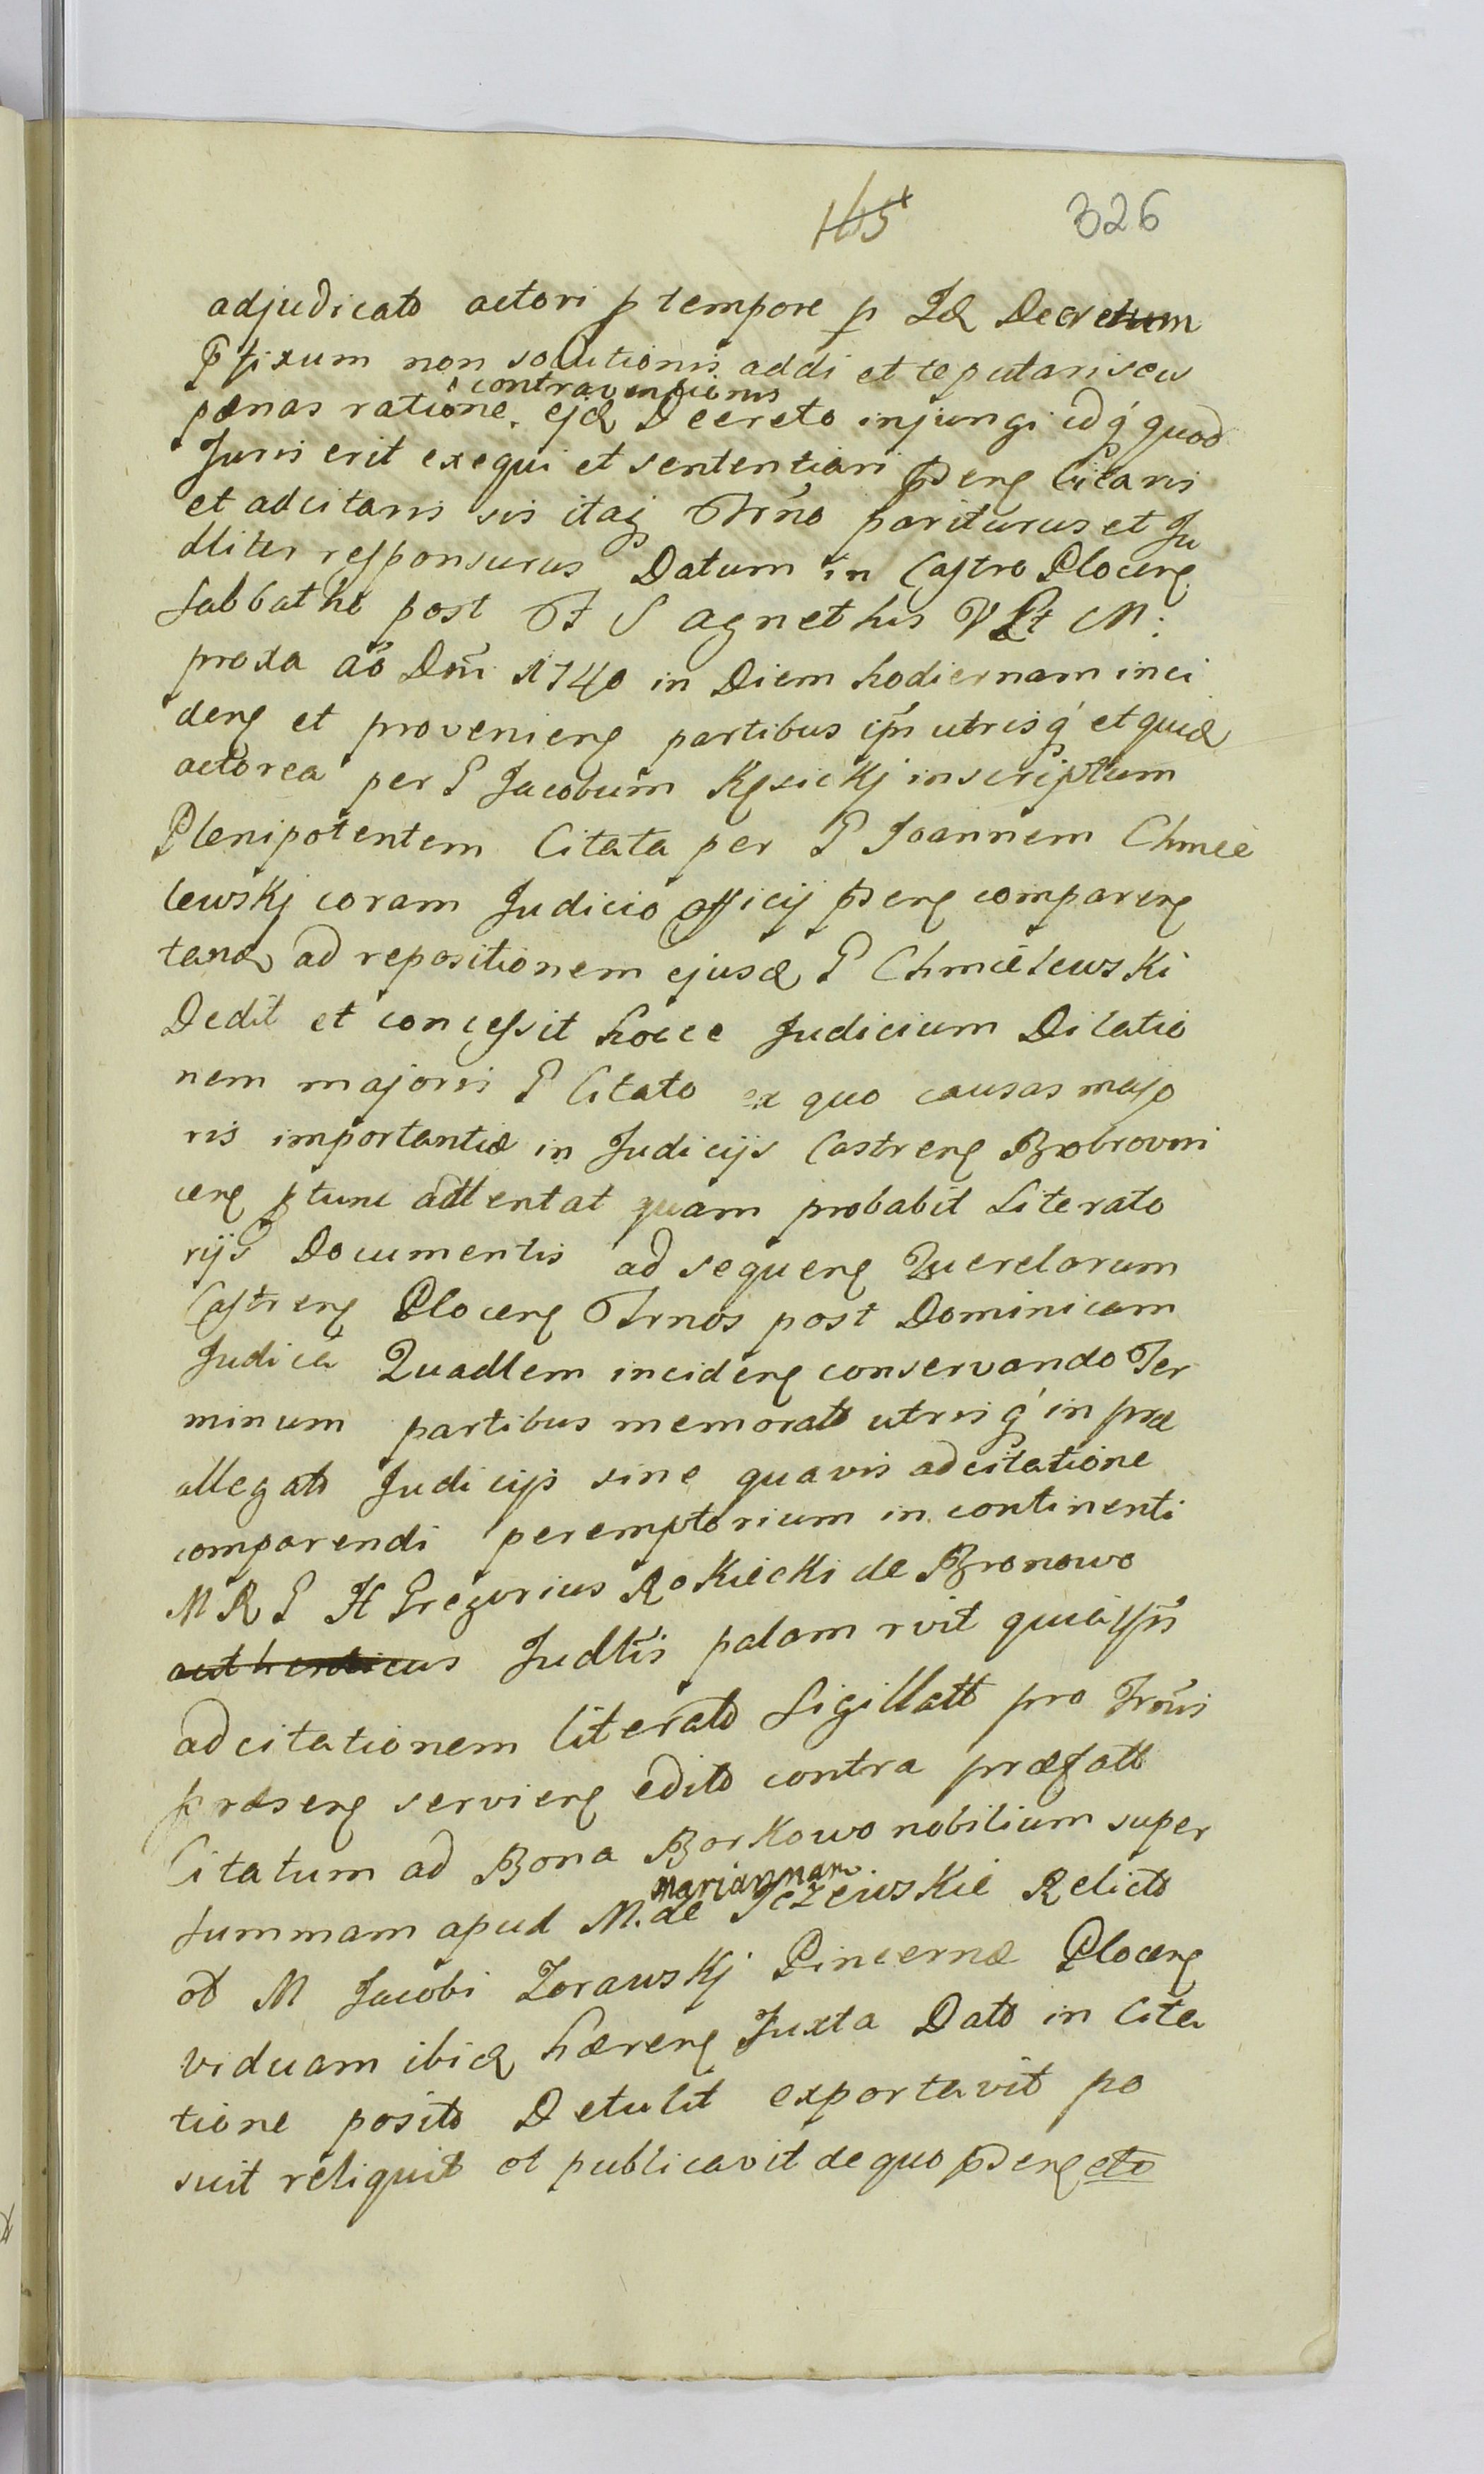 165 326
adjudicato actori p tempore p Id Decretum
Pfixum non solutionis addi et reputari seu
contraventionis
pœnas ratione ejd Decreto injungi idq quod
Juris erit exequi et sententiari Pdens Citaris
et adcitaris sis itaq Trno pariturus et Ju
dliter responsurus Datum in Castro Plocens
Sabbatho post F S Agnethis V et M:
proxa aõ Dni 1740 in Diem hodiernam inci
dens et proveniens partibus ipsis utrisq et quid
actorea per P Jacobum Kęsickj inscriptum
Plenipotentem Citata per P Joannem Chmie
lewskj coram Judicio officij pdens comparens
tand ad repositionem ejusd P Chmielewski
Dedit et concessit hocce Judicium Dilatio
nem majoris P Citato ex quo causas majo
ris importantiæ in Judicijs Castrens Bobrowni
cens ptunc attentat quam probabit Literato
rijs Documentis ad sequens Querelarum
Castrens Plocens Trnos post Dominicam
Judica Quadlem incidens conservando Ter
minum partibus memorats utrisq in præ
allegats Judicijs sine quavis adcitatione
comparendi peremptorium in continenti
M R P H Gregorius Rokicki de Bronowo
authenticus Judlis palam rvit quia ipse
adcitationem literats Sigillatt pro Trnis
præsens serviens edits contra præfatt
Citatum ad Bona Borkowo nobilium super
Mariannam
Summam apud M. de Jeżewskie Relicts
ol M Jacobi Zorawskj Pincernæ Plocens
viduam ibid hærens Juxta Dats in Cita
tione posits Detulit exportavit po
suit reliquit et publicavit de quo pdens etc